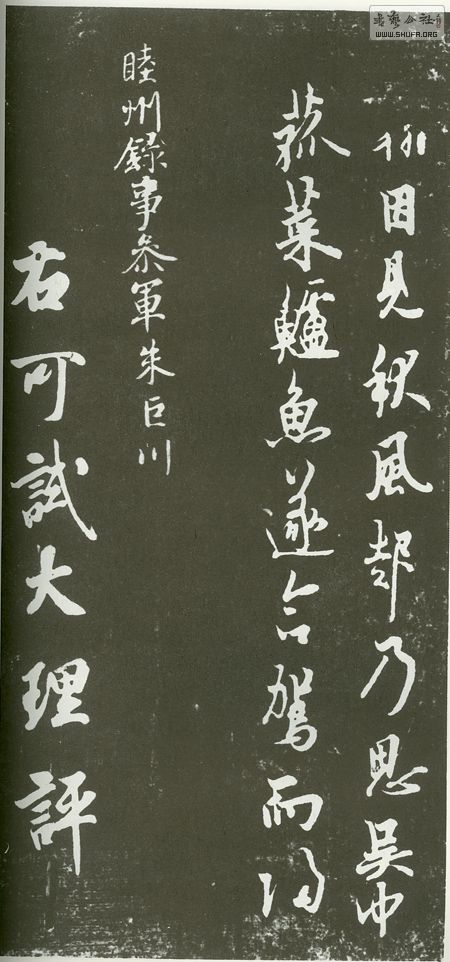 書藝公社
WWW.SHUFA.ORG
因見秋風起乃思吳中
菰菜鱸魚遂命駕而歸
睦州錄事叅軍朱巨川
右可試大理評